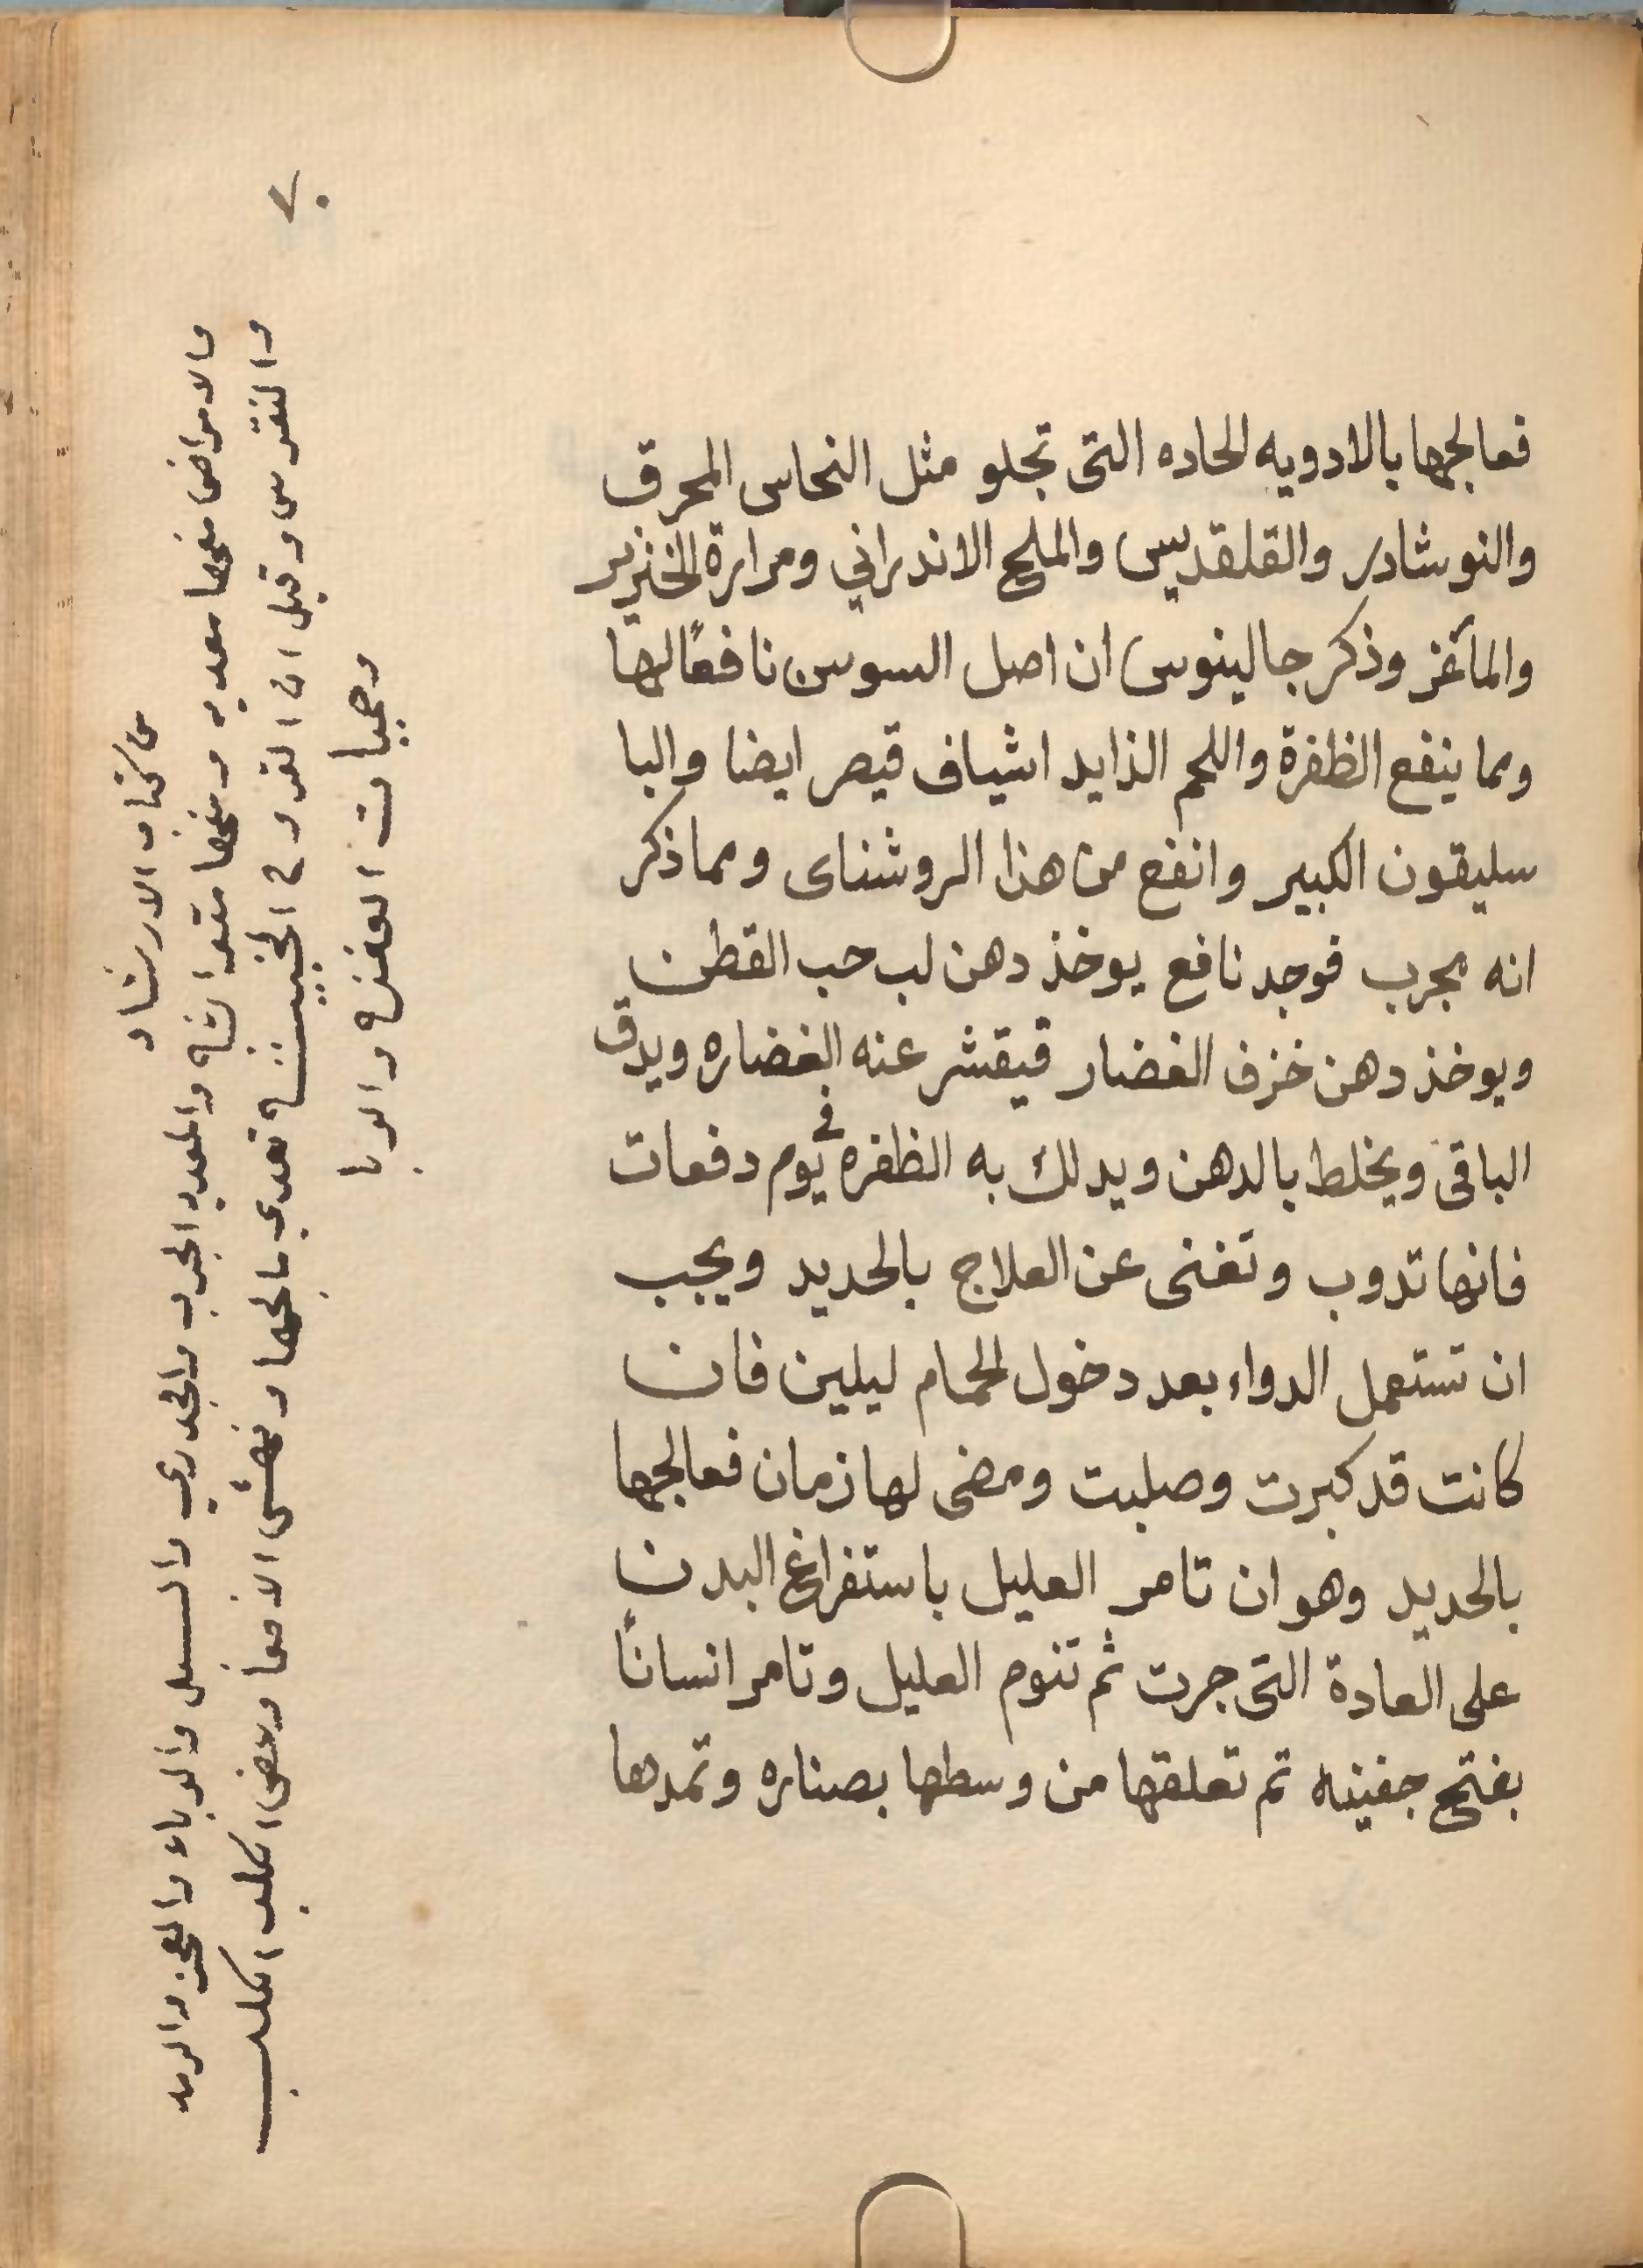 ٧٠
فعالجها بالادويه الحاده التى تجلو مثل النحاس المحرق
والنوشادر والقلقديس والملح الاندراني ومرارة الخنزير
والماعز وذكر جالينوس ان اصل السوسن نافعًا لها
ومما ينفع الظفرة واللحم الزايد اشياف قيصر ايضا والبا
سليقون الكبير وانفع من هذا الروشناى ومما ذكر
انه مجرب فوجد نافع يوخذ دهن لب حب القطن
ويوخذ دهن خزف الغضار فيقشر عنه الغضاره ويدق
الباقى ويخلط بالدهن ويدلك به الظفره فى يوم دفعات
فانها تدوب وتغنى عن العلاج بالحديد ويجب
ان تستعمل الدواء بعد دخول الحمام ليلين فان
كانت قد كبرت وصلبت ومضى لها زمان فعالجها
بالحديد وهو ان تامر العليل باستفراغ البدن
على العادة التى جرت ثم تنوم العليل وتامر انسانًا
بفتح جفينه تم تعلقها من وسطها بصناره وتمدها
من كتاب الارشاد
والامراض منها معديه ومنها متوارثه والمعديه الجرب والجدري والسل والوباء والرمد
والنقرس وقيل ان القروح الخبيثه تعدي صاحبها ونهش الافعا وعض الكلب الكلب
وحميات العفنه والوبا